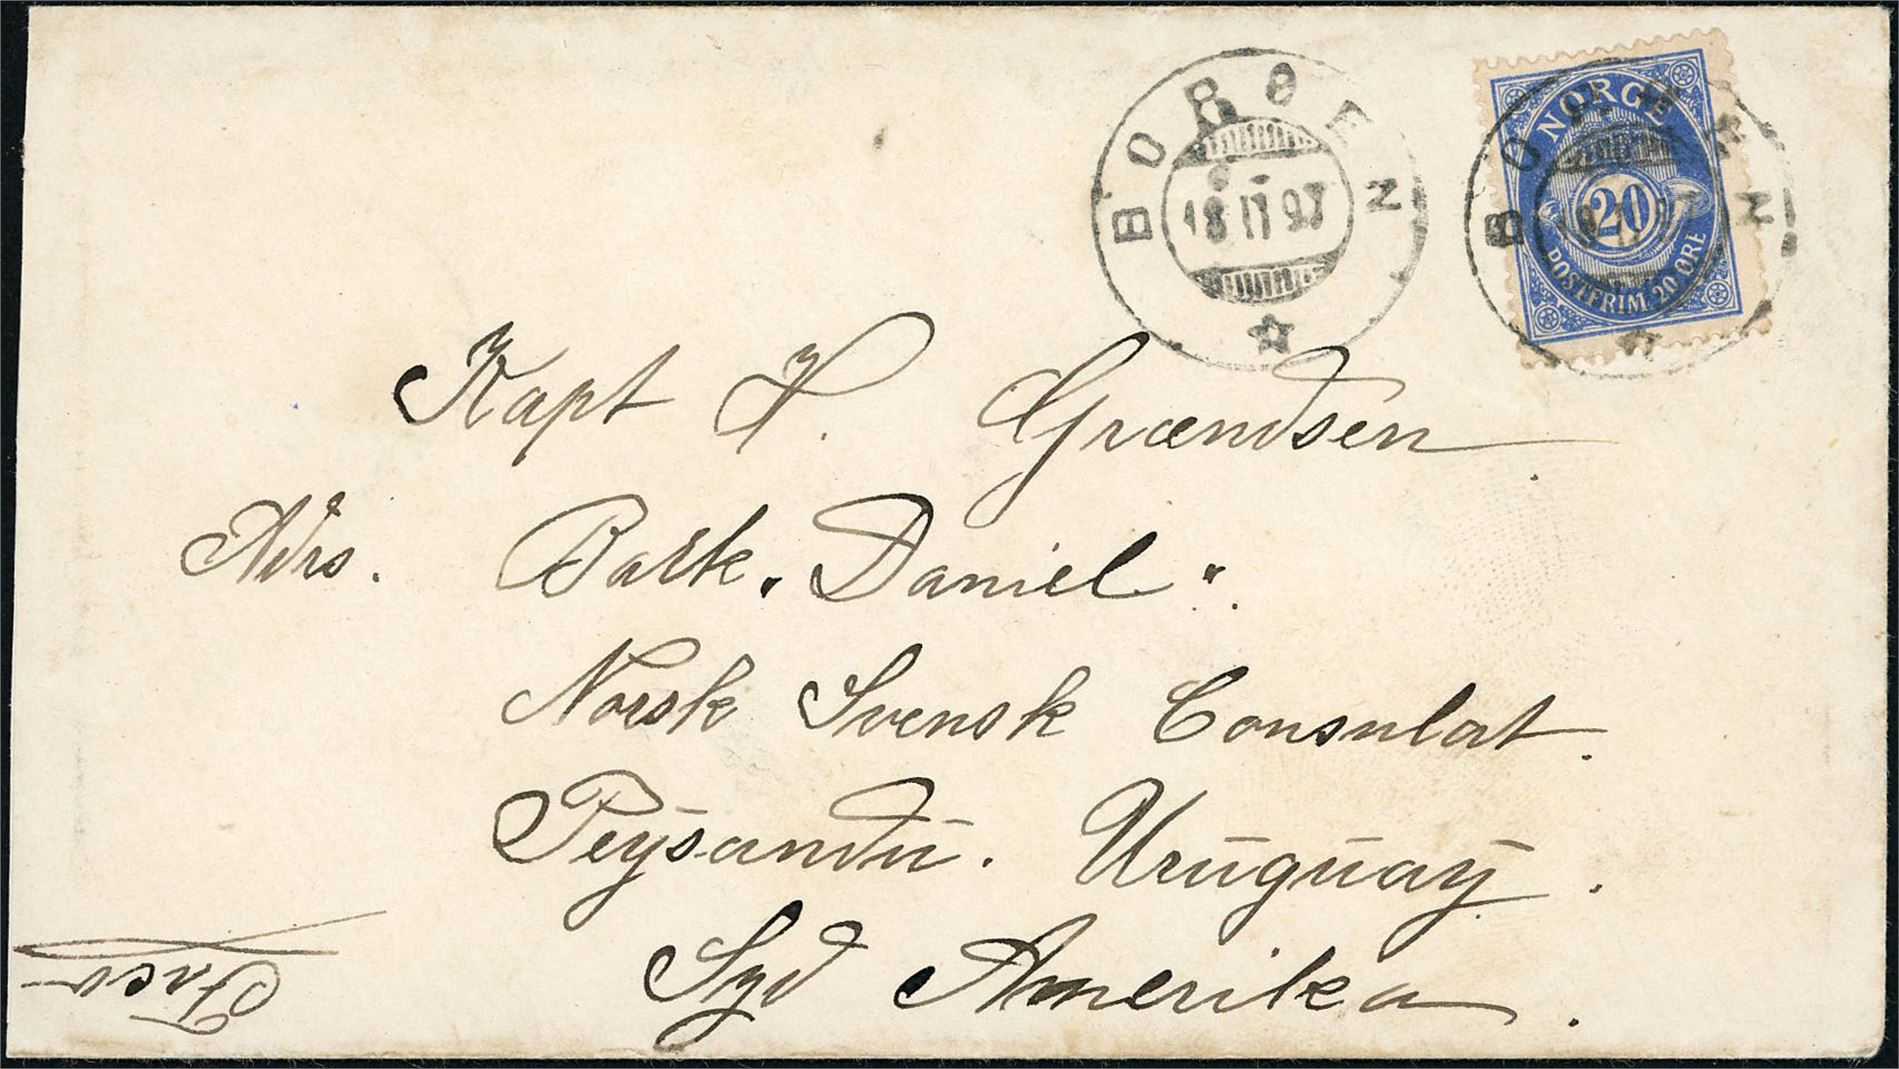 BORØEN
18 II 97
NORGE
20
POSTFRIM 20 ØRE
BORØEN
Kapt H. Grændsen
Adrs. Bark. "Daniel".
Norsk Svensk Consulat.
Peysandu. Uruguay.
Syd Amerika.